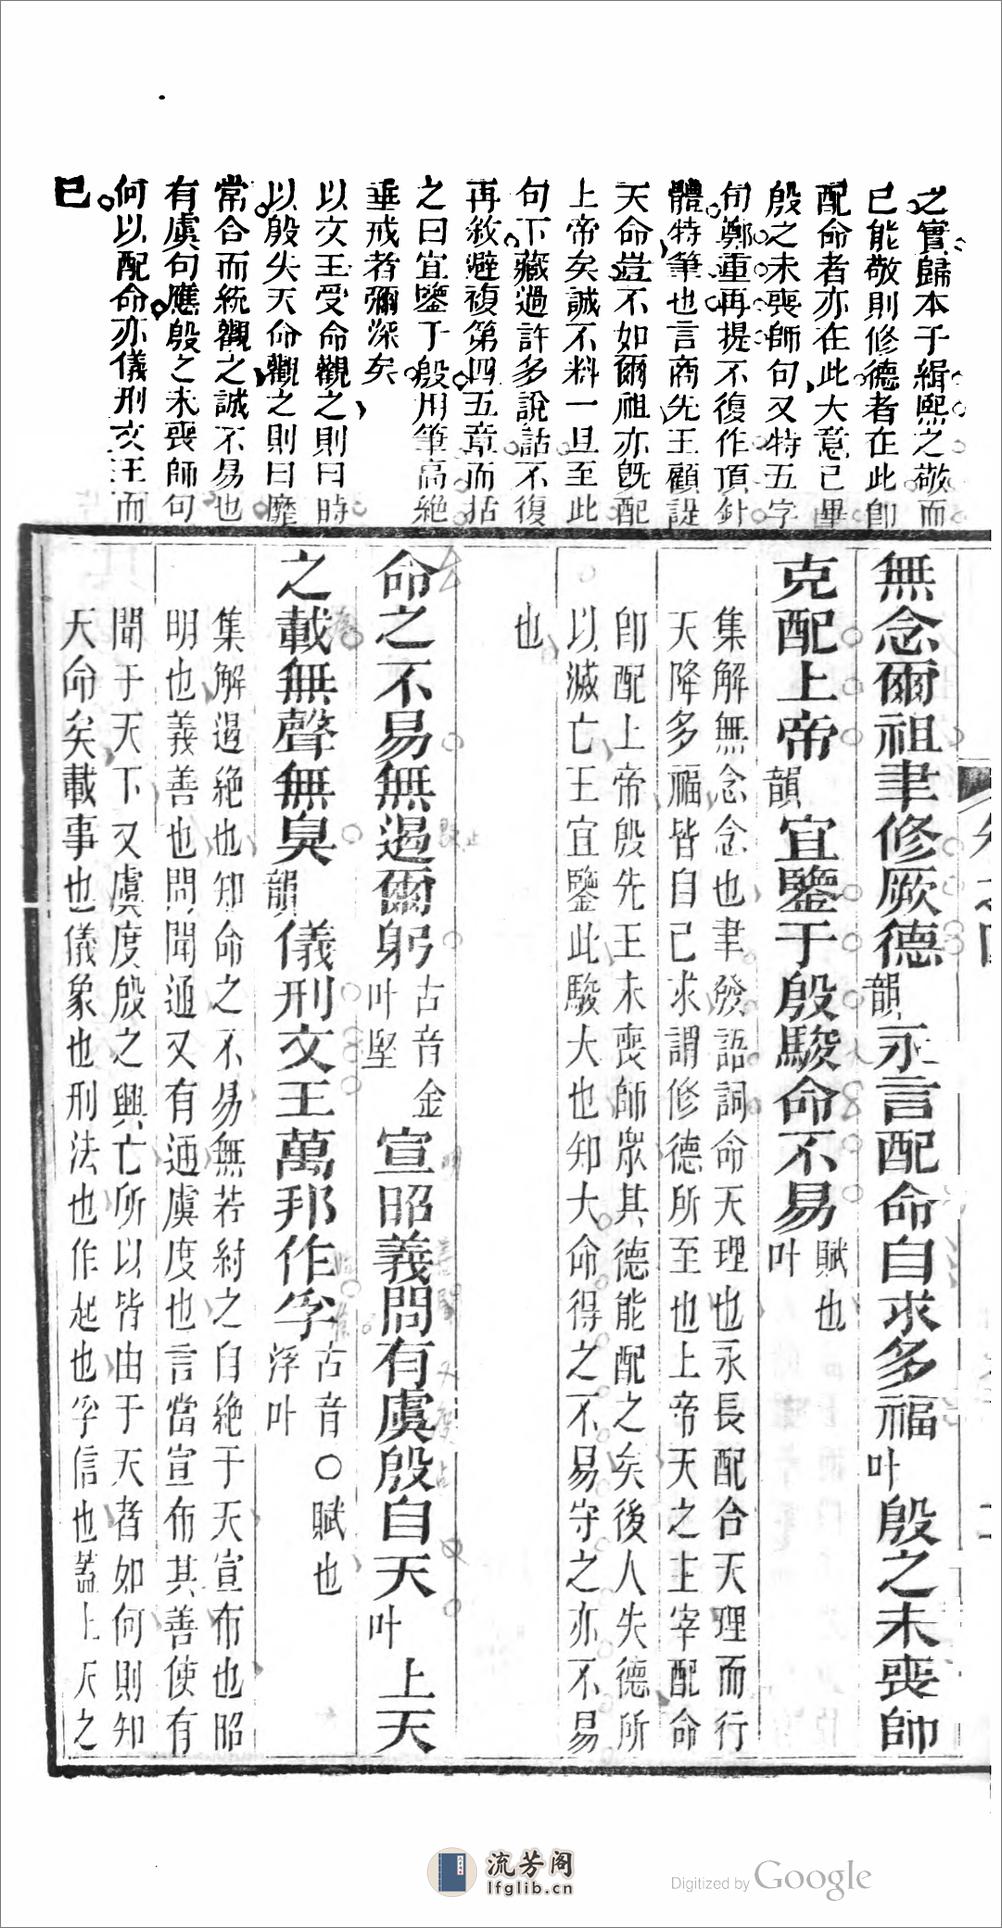 之實歸本于緝熙之敬而
已能敬則修德者在此卽
配命者亦在此大意已畢
殷之未喪師句又特五字
句鄭重再提不復作頂針
體特筆也言商先王顧諟
天命豈不如爾祖亦旣配
上帝矣誠不料一旦至此
句下藏過許多說話不復
再敘避複第四五章而括
之曰宜鑒于殷用筆高絕
垂戒者彌深矣
以文王受命觀之則曰時
以殷失天命觀之則曰靡
常合而統觀之誠不易也
有虞句應殷之未喪師句
何以配命亦儀刑文王而
已
無念爾祖聿修厥德韻永言配命自求多福叶殷之未喪師
克配上帝韻宜鑒于殷駿命不易叶賦也
集解無念念也聿發語詞命天理也永長配合天理而行
天降多福皆自己求謂修德所至也上帝天之主宰配命
卽配上帝殷先王未喪師眾其德能配之矣後人失德所
以滅亡王宜鑒此駿大也知大命得之不易守之亦不易
也
命之不易無遏爾躬古音金叶堅宣昭義問有虞殷自天叶上天
之載無聲無臭韻儀刑文王萬邦作孚古音浮叶○賦也
集解遏絕也知命之不易無若紂之自絕于天宣布也昭
明也義善也問聞通又有通虞度也言當宣布其善使有
聞于天下又虞度殷之興亡所以皆由于天者如何則知
天命矣載事也儀象也刑法也作起也孚信也蓋上天之
流芳阁
lfglib.cn
Digitized by Google